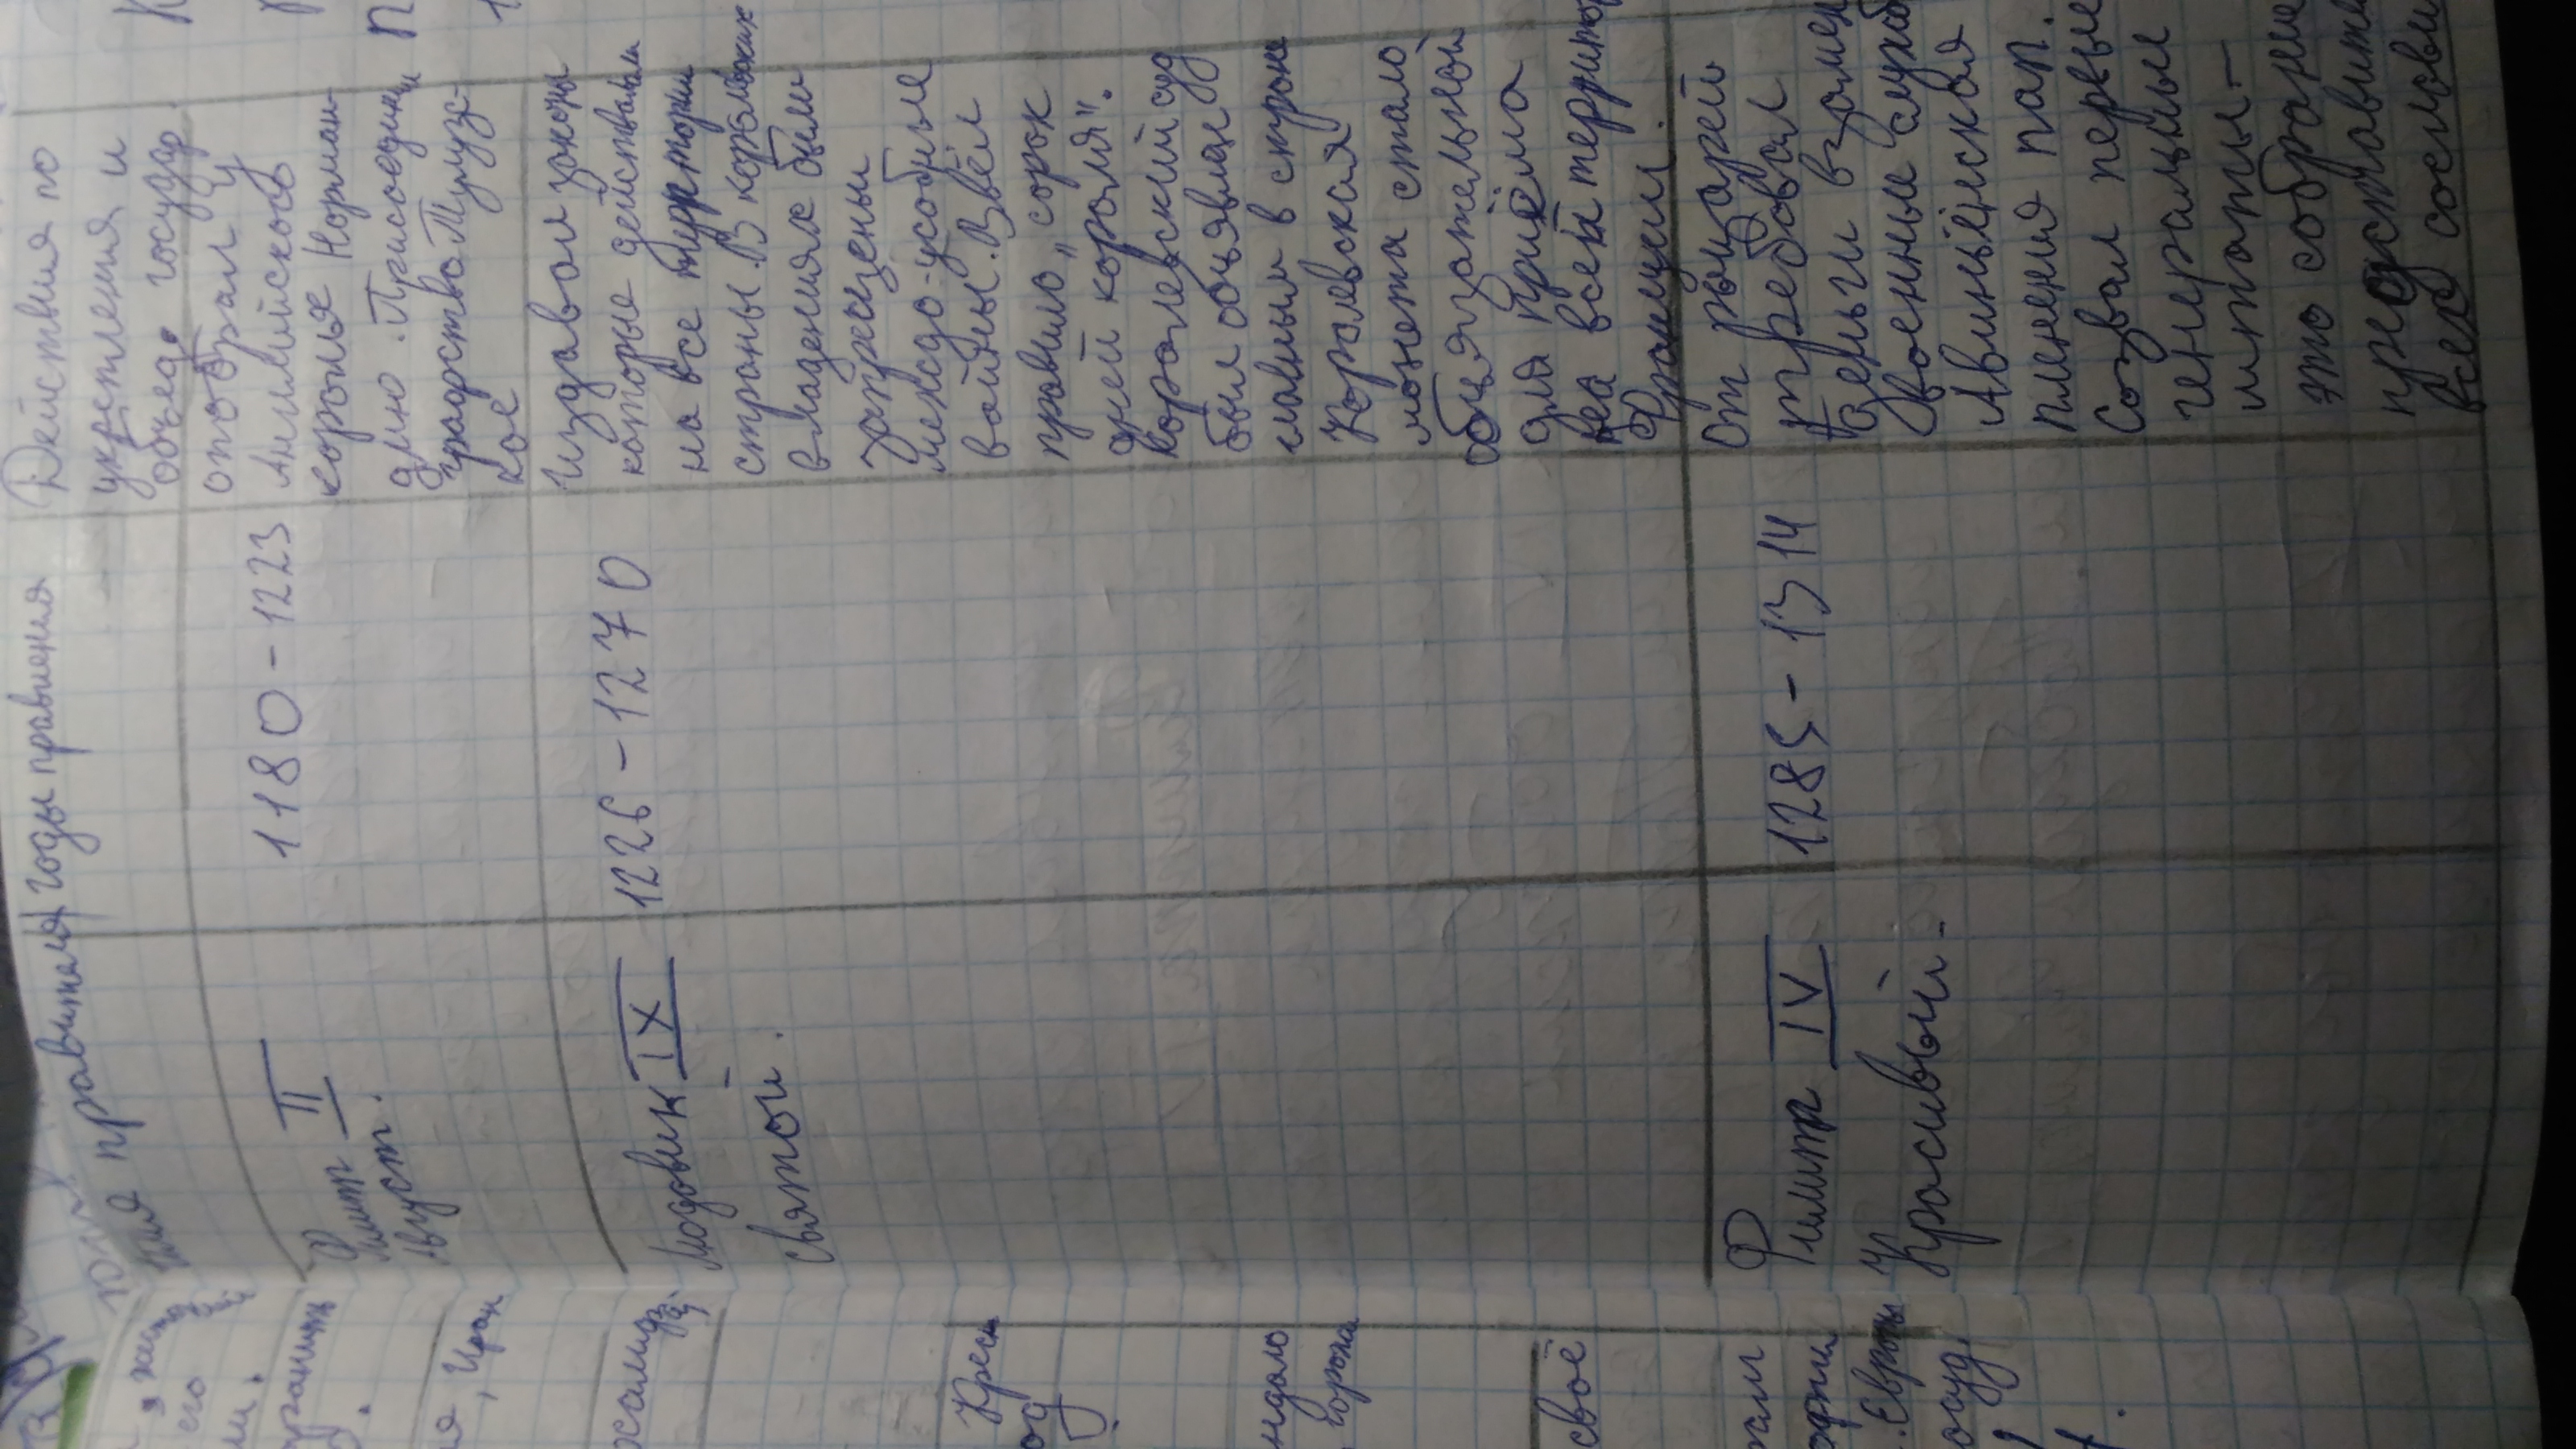 Имя правителя
годы правления
Действия по
укреплению и
объед. государ
Филипп II
Август.
1180-1223
отобрал у
Английского
королья Норман-
дию. Присоедини
графство Тулузс-
кое
Людовик IX
святой.
1226-1270
Издавал законы
которые действовали
на все территории
страны. В королевских
владениях были
запрещены
междо-усобные
войны. Ввёл
правило "сорок
дней короля".
Королевский суд
был объявлен
главным в стране
Королевская
монета стало
обязательной
для приёма
на всей территор
Франции.
Филипп IV
Красивый.
1285-1314
От рыцарей
требовал
деньги взамен
военные служб
Авиньёнская
пленения пап.
Созвал первые
генеральные
штаты-
это собрание
представите
всех сослови
его
Крест
од
свое